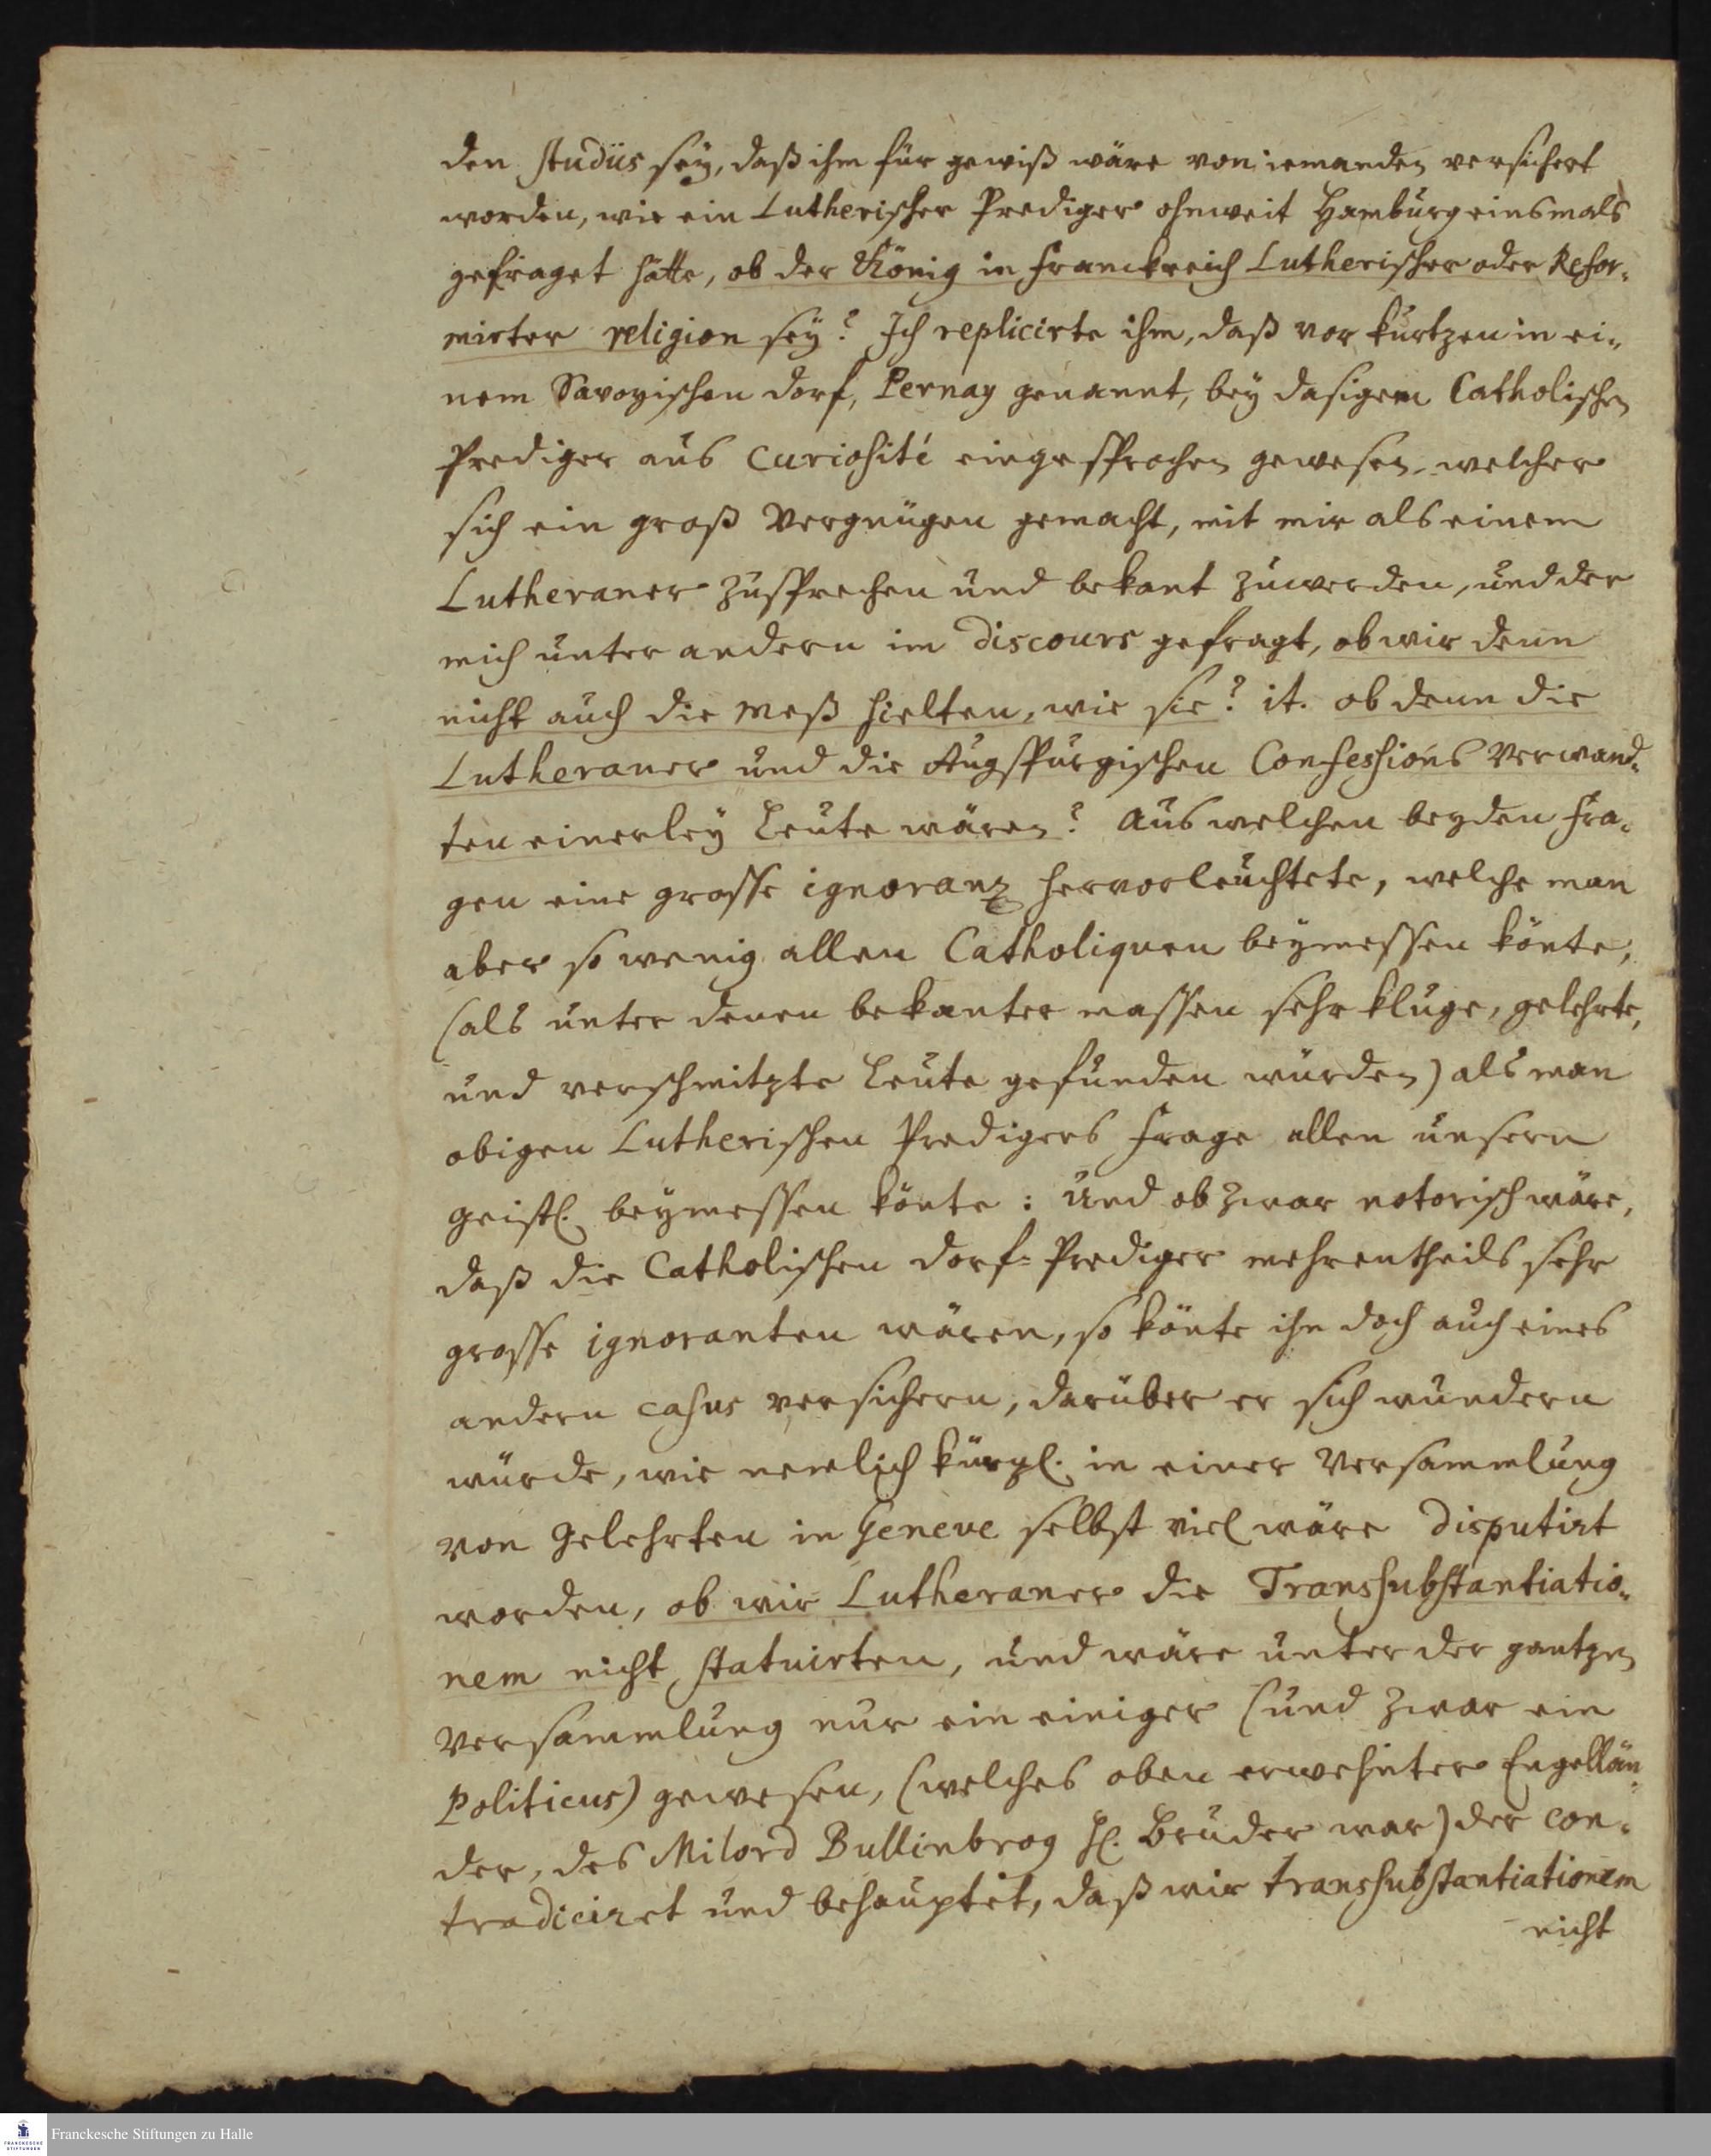 den studiis seÿ, daß ihm für gewiß wäre von iemanden versichert
worden, wie ein Lutherischer Prediger ohnweit Hamburg einsmals
gefraget hätte, ob der König in Franckreich Lutherischer oder Refor-
mirter religion seÿ? Ich replicirte ihm, daß vor kurtzen in ei-
nem Savoyischen dorf, Pernay genannt, bey dasigem Catholischen
Prediger aus Curiosité eingesprochen gewesen, welcher
sich ein groß Vergnügen gemacht, mit mir als einem
Lutheraner zusprechen und bekant zuwerden, und der
mich unter andern im Discours gefragt, ob wir denn
nicht auch die Meß hielten, wie sie? it. ob denn die
Lutheraner und die Augspurgischen Confessions Verwand-
ten einerleÿ Leute wären? Aus welchen beyden Fra-
gen eine grosse ignoranz hervorleuchtete, welche man
aber so wenig allen Catholiquen beÿmessen könte,
(als unter denen bekanter massen sehr kluge, gelehrte,
und verschmitzte Leute gefunden würden) als man
obigen Lutherischen Predigers Frage allen unsern
Geistl. beÿmessen könte: Und ob zwar notorisch wäre,
daß die Catholischen dorf-Prediger mehrentheils sehr
grosse ignoranten wären, so könte ihn doch auch eines
andern casus versichern, darüber er sich wundern
würde, wie nemlich kürzl. in einer Versammlung
von Gelehrten in Geneve selbst viel wäre disputirt
worden, ob wir Lutheraner die Transsubstantiatio-
nem nicht statuirten, und wäre unter der gantzen
Versammlung nur ein einiger (und zwar ein
Politicus) gewesen, (welches oben erwehnter Engellän-
der, des Milord Bullinbrog H. Bruder war) der con-
tradiciret und behauptet, daß wir transsubstantiationem
nicht
Franckesche Stiftungen zu Halle